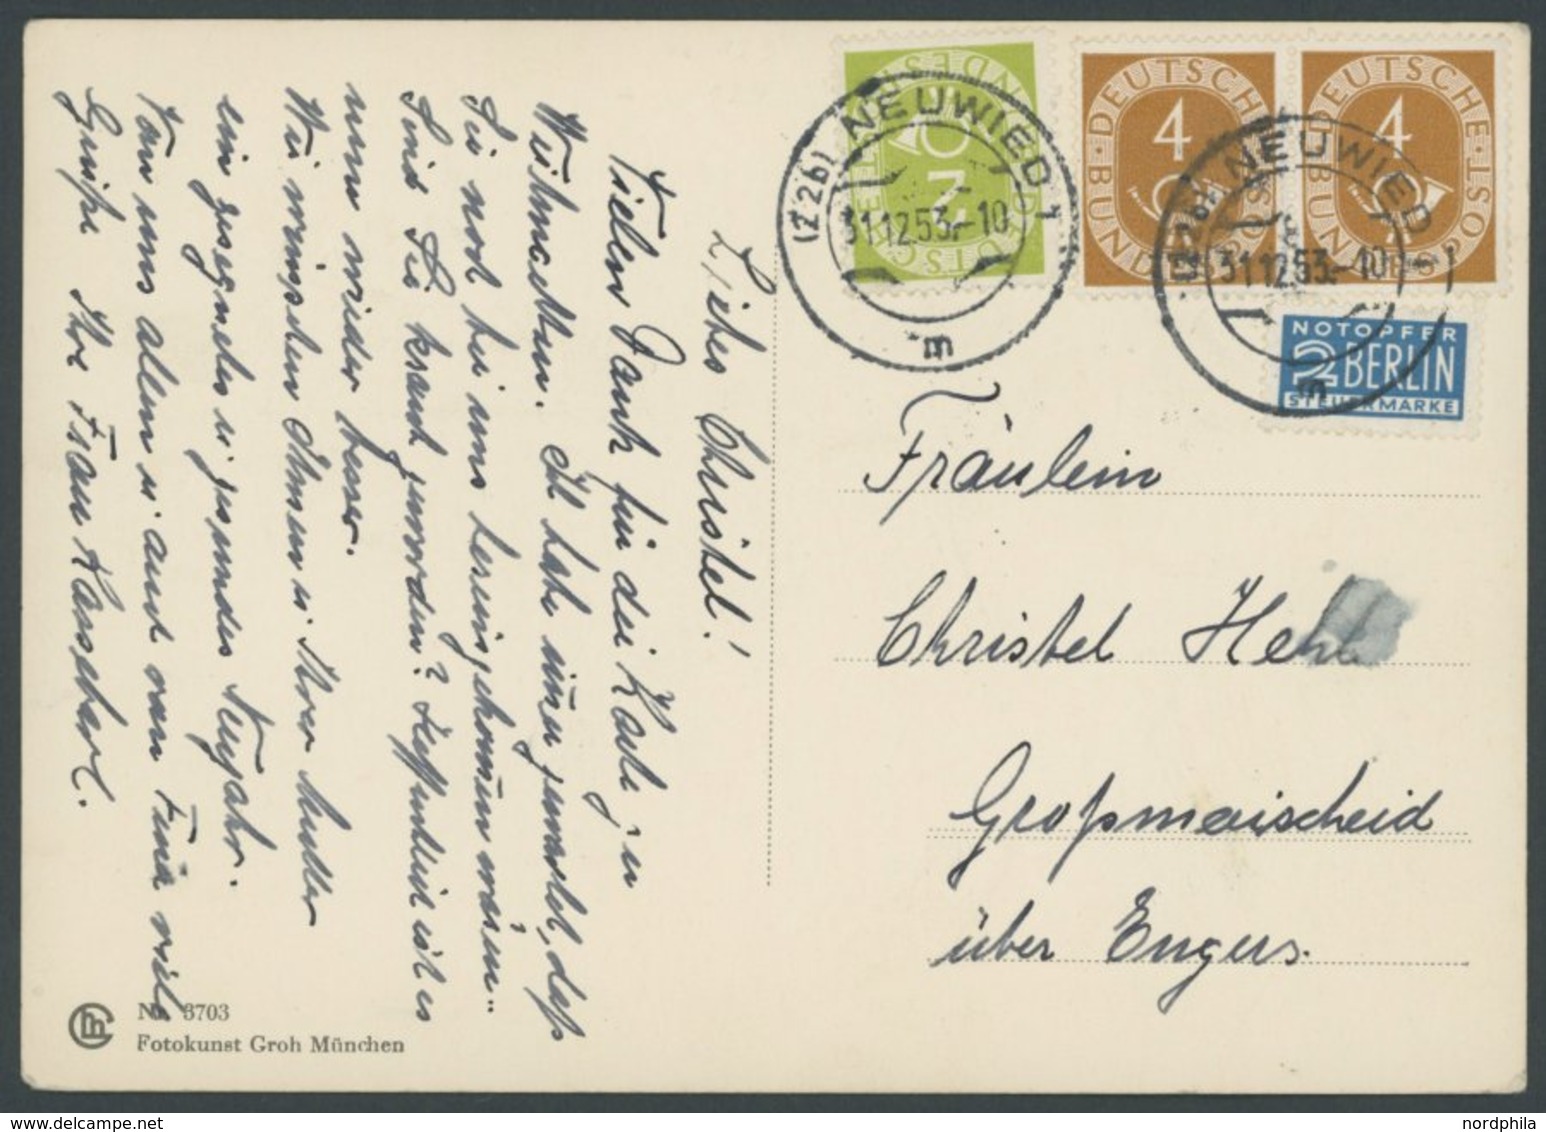 Liebes Christel!
Vielen Dank für die Karte zu
Weihnachten. Ich habe immer gewartet, daß
Sie noch bei uns hereingekommen wären.
Sind Sie krank geworden? Hoffentlich ist es
nun wieder besser.
Wir wünschen Ihnen u. Ihrer Mutter
ein gesegnetes u. gesundes Neujahr.
Von uns allen u. auch von viele
Grüße Ihre Frau
No 3703
Fotokunst Groh München
DEUTSCHE BUNDESPOST
2
DEUTSCHE BUNDESPOST
4
DEUTSCHE BUNDESPOST
4
(22b) NEUWIED 1
31.12.53.-10
m
(22b) NEUWIED 1
31.12.53.-10
m
NOTOPFER
2 BERLIN
STEUERMARKE
Fräulein
Christel
Großmaischeid
über Engers.
www.delcampe.net
nordphila